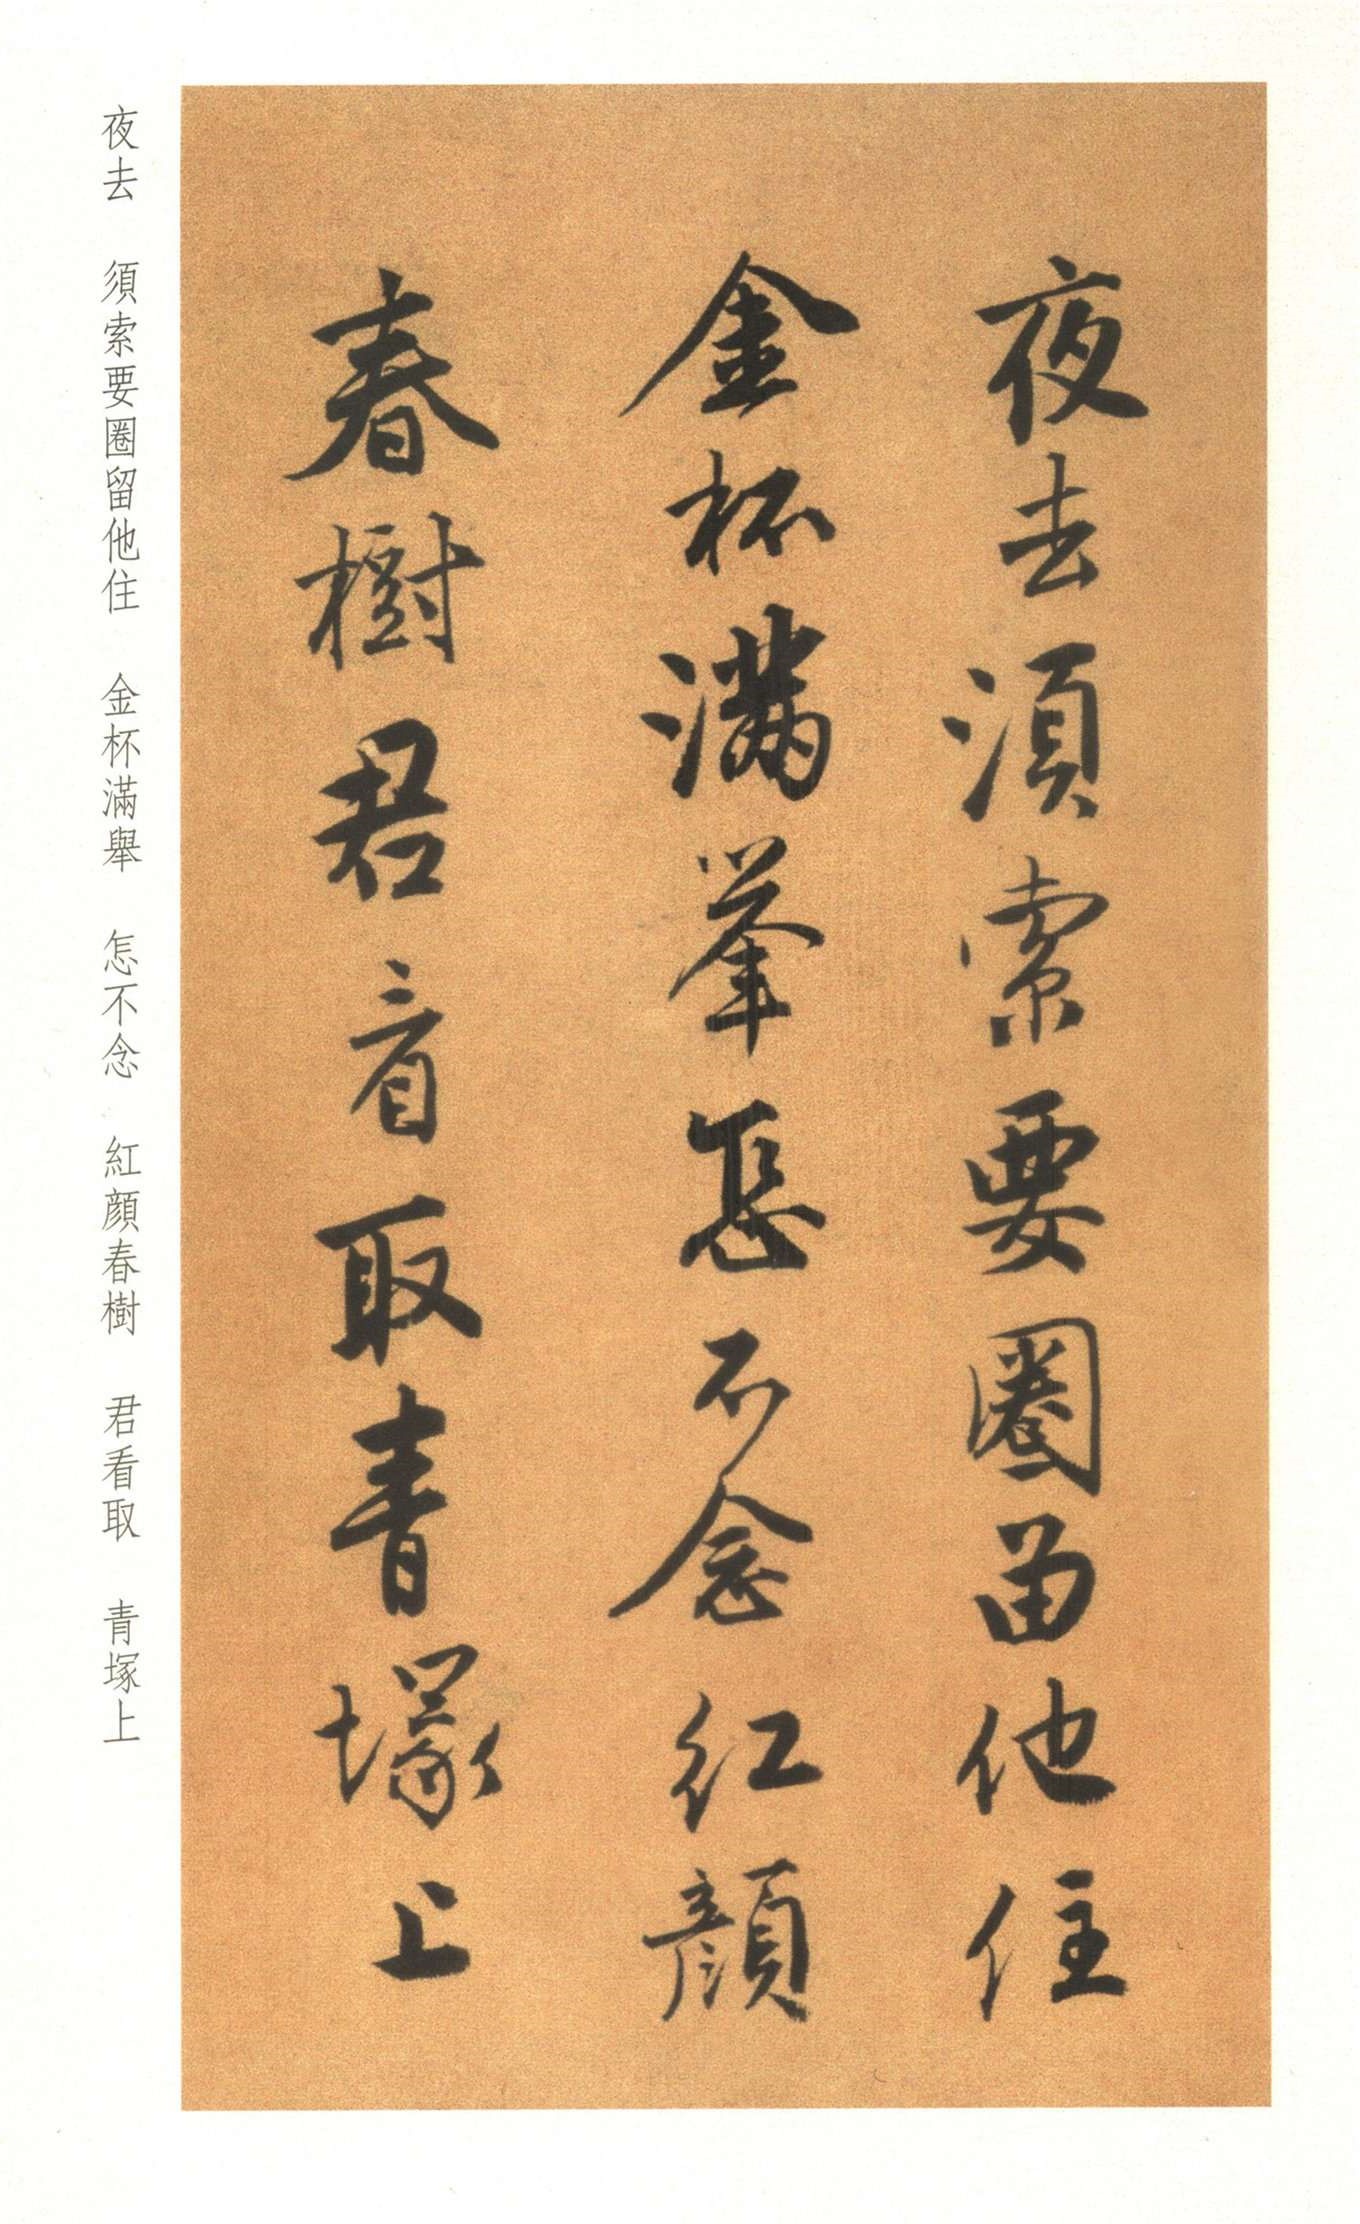 夜去須索要圈留他住
金杯滿舉怎不念紅顔
春樹君看取青塚上
夜去　須索要圈留他住　金杯滿舉　怎不念　紅顔春樹　君看取　青塚上